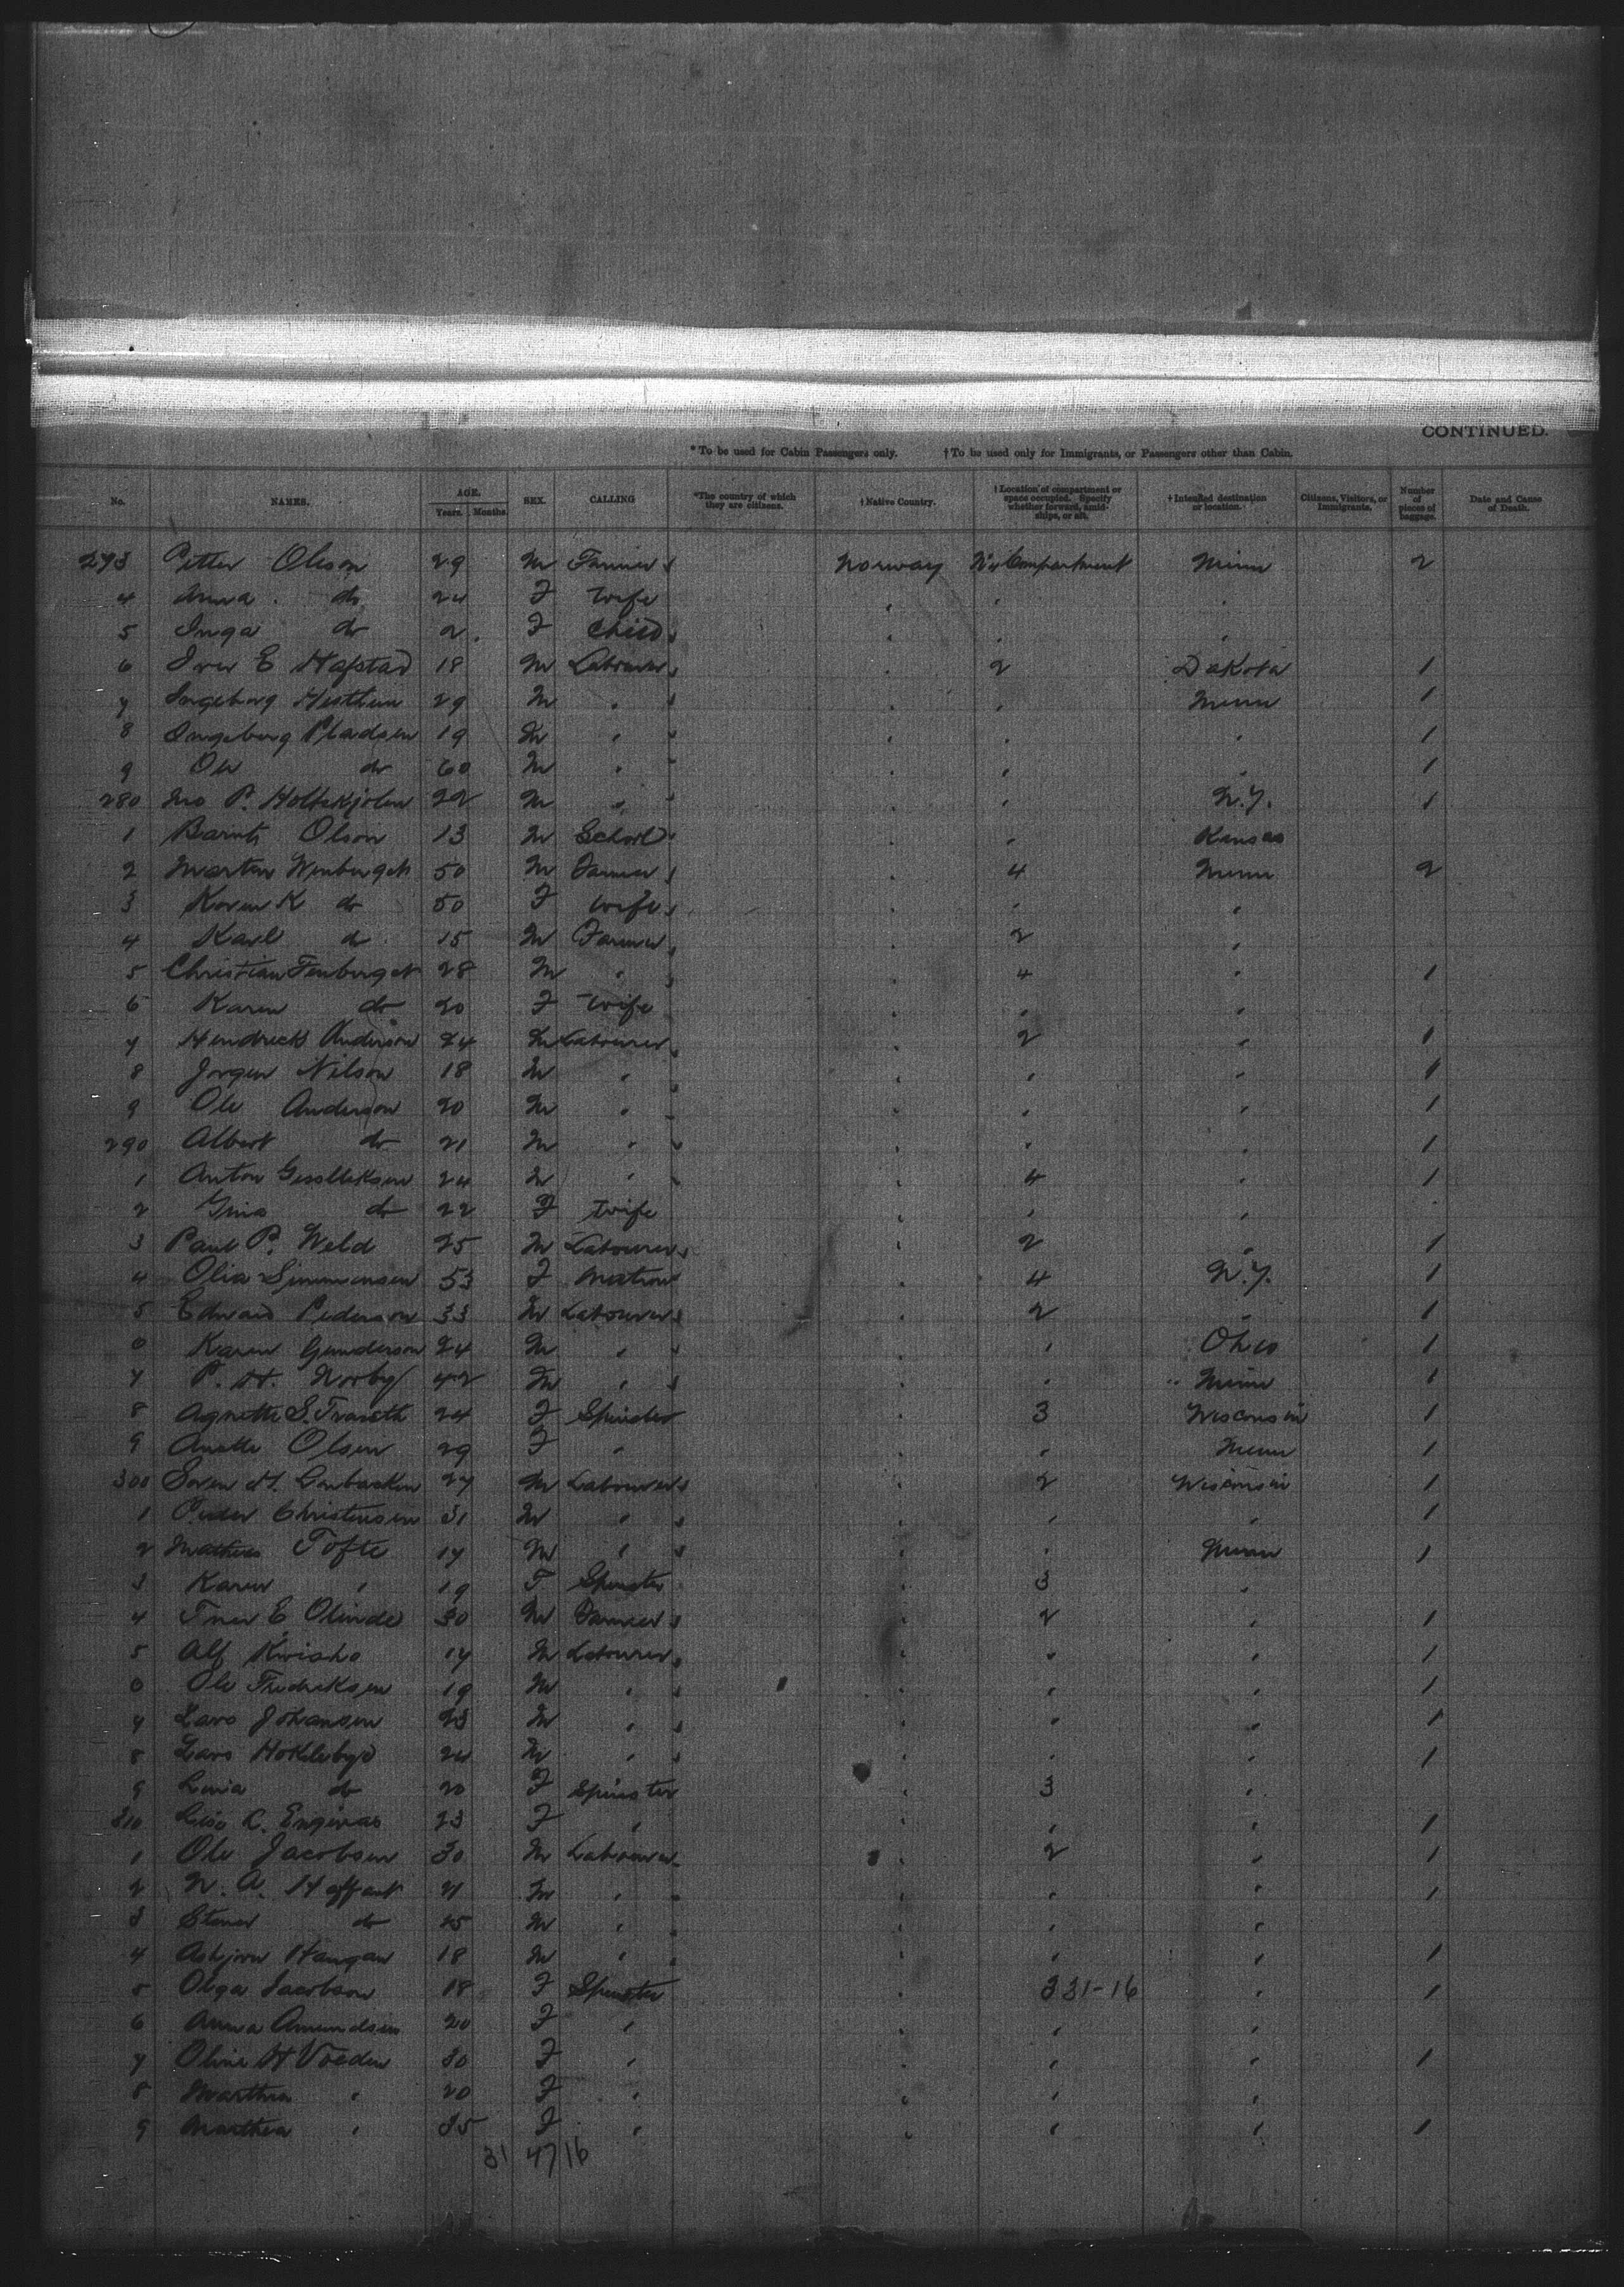 CONTINUED.
*To be used for Cabin Passengers only. †To be used only for Immigrants, or Passengers other than Cabin.
No. NAMES. AGE. Years. Months. SEX. CALLING *The country of which they are citizens. †Native Country. †Location of compartment or space occupied. Specify whether forward, amidships, or aft. †Intended destination or location. Citizens, Visitors, or Immigrants. Number of pieces of baggage. Date and Cause of Death.
273 Petter Olson 29 M Farmer Norway Compartment Minn 2
4 Anna do 24 F Wife " " "
5 Inga do 2 F Child " " "
6 Iver E Hafstad 18 M Labourer " 2 Dakota 1
7 Ingeborg 29 M " " " Minn 1
8 Ingeborg Pladsen 19 M " " " " 1
9 Ole do 60 M " " " " 1
280 P. 22 M " " " N.Y. 1
1 Olson 13 M School " " Kansas
2 Morten 50 M Farmer " 4 Minn 2
3 K do 50 F Wife " " "
4 Karl do 15 M Farmer " 2 "
5 Christian 28 M " " 4 " 1
6 Karen do 20 F Wife " " "
7 Hendrick Anderson 24 M Labourer " 2 " 1
8 Jorgen Nilson 18 M " " " " 1
9 Ole Anderson 20 M " " " " 1
290 Albert do 21 M " " " " 1
1 Anton 24 M " " 4 " 1
2 Gina do 22 F Wife " " "
3 Paul P. Weld 25 M Labourer " 2 " 1
4 Olia Simmensen 53 F Matron " 4 N.Y. 1
5 Edward Pederson 33 M Labourer " 2 " 1
6 Karen Gunderson 24 M " " " Ohio 1
7 P. H. Norby 42 M " " " Minn 1
8 Agnethe S. 24 F Spinster " 3 Wisconsin 1
9 Anette Olsen 29 F " " " Minn 1
300 Soren H. 27 M Labourer " 2 Wisconsin 1
1 Peder Christensen 31 M " " " " 1
2 Mathias Tofte 17 M " " " Minn 1
3 Karen " 19 F Spinster " 3 "
4 E. Olinde 30 M Farmer " 2 " 1
5 Alf 17 M Labourer " " " 1
6 Ole Fredriksen 19 M " " " " 1
7 Lars Johansen 23 M " " " " 1
8 Lars Hoklebye 24 M " " " " 1
9 do 20 F Spinster " 3 "
310 C. 23 F " " " " 1
1 Ole Jacobsen 30 M Labourer " 2 " 1
2 N. A. 21 M " " " " 1
3 do 25 M " " " "
4 Asbjorn Haugan 18 M " " " " 1
5 Olga Jacobson 18 F Spinster " 3 31-16 " 1
6 Anna Amundsen 20 F " " " "
7 Oline H 30 F " " " " 1
8 " 20 F " " " "
9 Marthea " 35 F " " " " 1
31 47/16